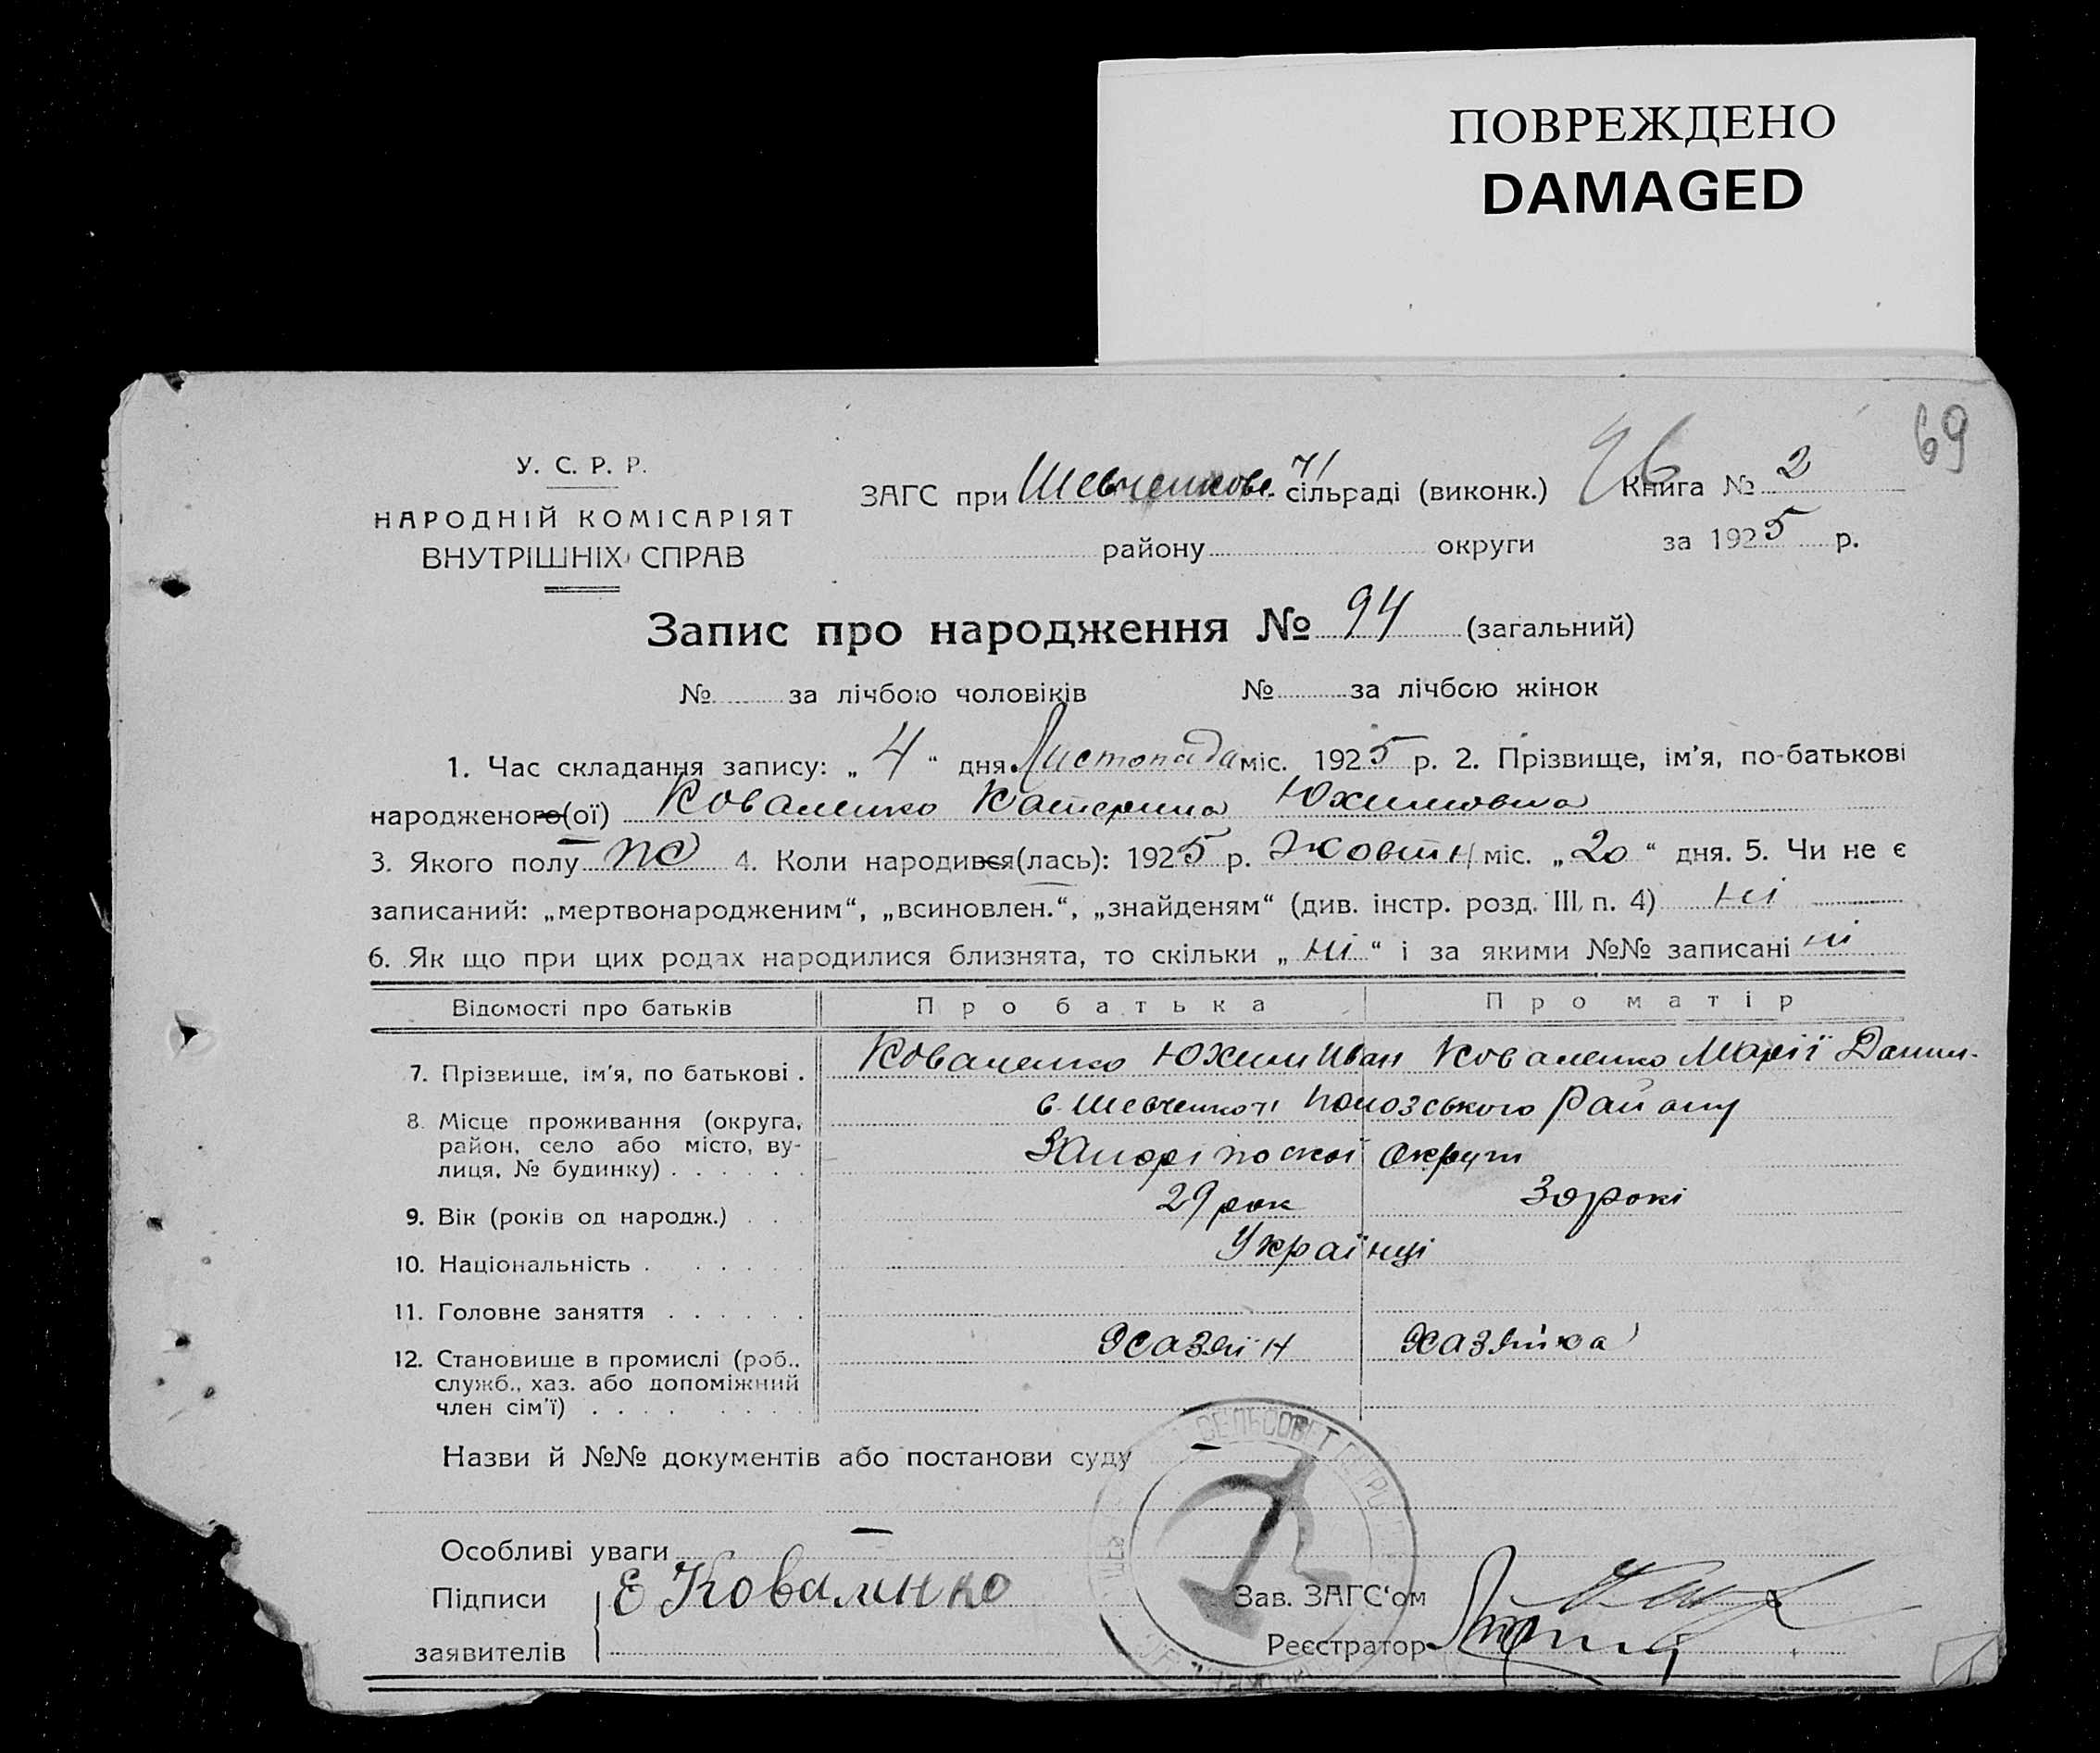 ПОВРЕЖДЕНО
DAMAGED
69
У. С. Р. Р.
НАРОДНІЙ КОМІСАРІЯТ
ВНУТРІШНІХ СПРАВ
ЗАГС при Шевченкове сільраді (виконк.) Книга № 2
району округи за 1925 р.
Запис про народження № 94 (загальний)
№ за лічбою чоловіків № за лічбою жінок
1. Час складання запису: „4“ дня Листопада міс. 1925 р. 2. Прізвище, ім’я, по-батькові
народженого(ої) Коваленко Катерина Юхимовна
3. Якого полу 4. Коли народився(лась): 1925 р. Жовтн міс. „20“ дня. 5. Чи не є
записаний: „мертвонародженим“, „всиновлен.“, „знайденям“ (див. інстр. розд. III, п. 4) ні
6. Як що при цих родах народилися близнята, то скільки „ні“ і за якими №№ записані ні
Відомості про батьків Про батька Про матір
7. Прізвище, ім’я, по батькові . Коваленко Юхим Иван Коваленко Марії Данил-
8. Місце проживання (округа,
район, село або місто, ву-
лиця, № будинку) . . . . . . району
округи
9. Вік (років од народж.) . . . 29 рок 30 рокі
10. Національність . . . . . . Українці
11. Головне заняття . . . . . .
12. Становище в промислі (роб.,
служб., хаз. або допоміжний
член сім’ї) . . . . . . . . Хазяїн Хазяйка
Назви й №№ документів або постанови суду —
СЕЛЬСОВЕТ
Особливі уваги —
Підписи Е Коваленко Зав. ЗАГС‘ом
заявителів Реєстратор